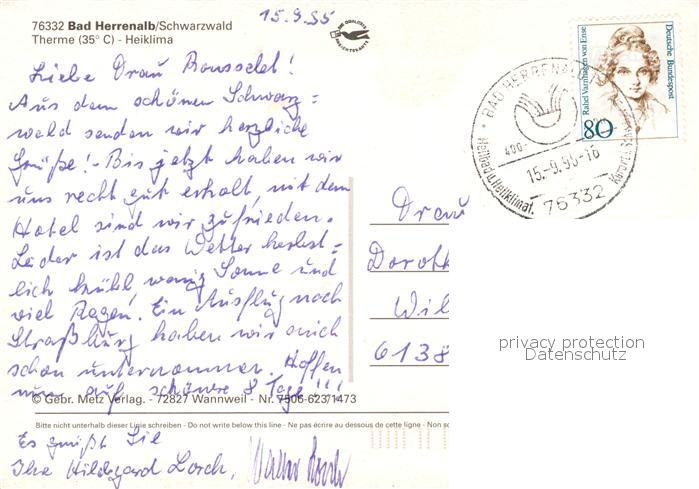 76332 Bad Herrenalb/Schwarzwald
Therme (35° C) - Heiklima
15.9.95
Liebe Frau Rousselet!
Aus dem schönen Schwarz=
wald senden wir herzliche
Grüße! - Bis jetzt haben wir
uns recht gut erholt, mit dem
Hotel sind wir zufrieden.
Leider ist das Wetter herbst=
lich kühl, wenig Sonne und
viel Regen. Ein Ausflug nach
Straßburg haben wir auch
schon unternommen. Hoffen
nur auf schönere 8 Tage!!!
© Gebr. Metz Verlag. - 72827 Wannweil - Nr. 7506-623/1473
Bitte nicht unterhalb dieser Linie schreiben - Do not write below this line - Ne pas écrire au dessous de cette ligne - Non sc
Es grüßt Sie
Ihre Hildegard Lorch,
BAD HERRENALB
400-
15.-9.95-16
Heilbad u. Heilklimat.
76332
Rahel Varnhagen von Ense
Deutsche Bundespost
80
Frau
Doroth
Wil
6138
privacy protection
Datenschutz